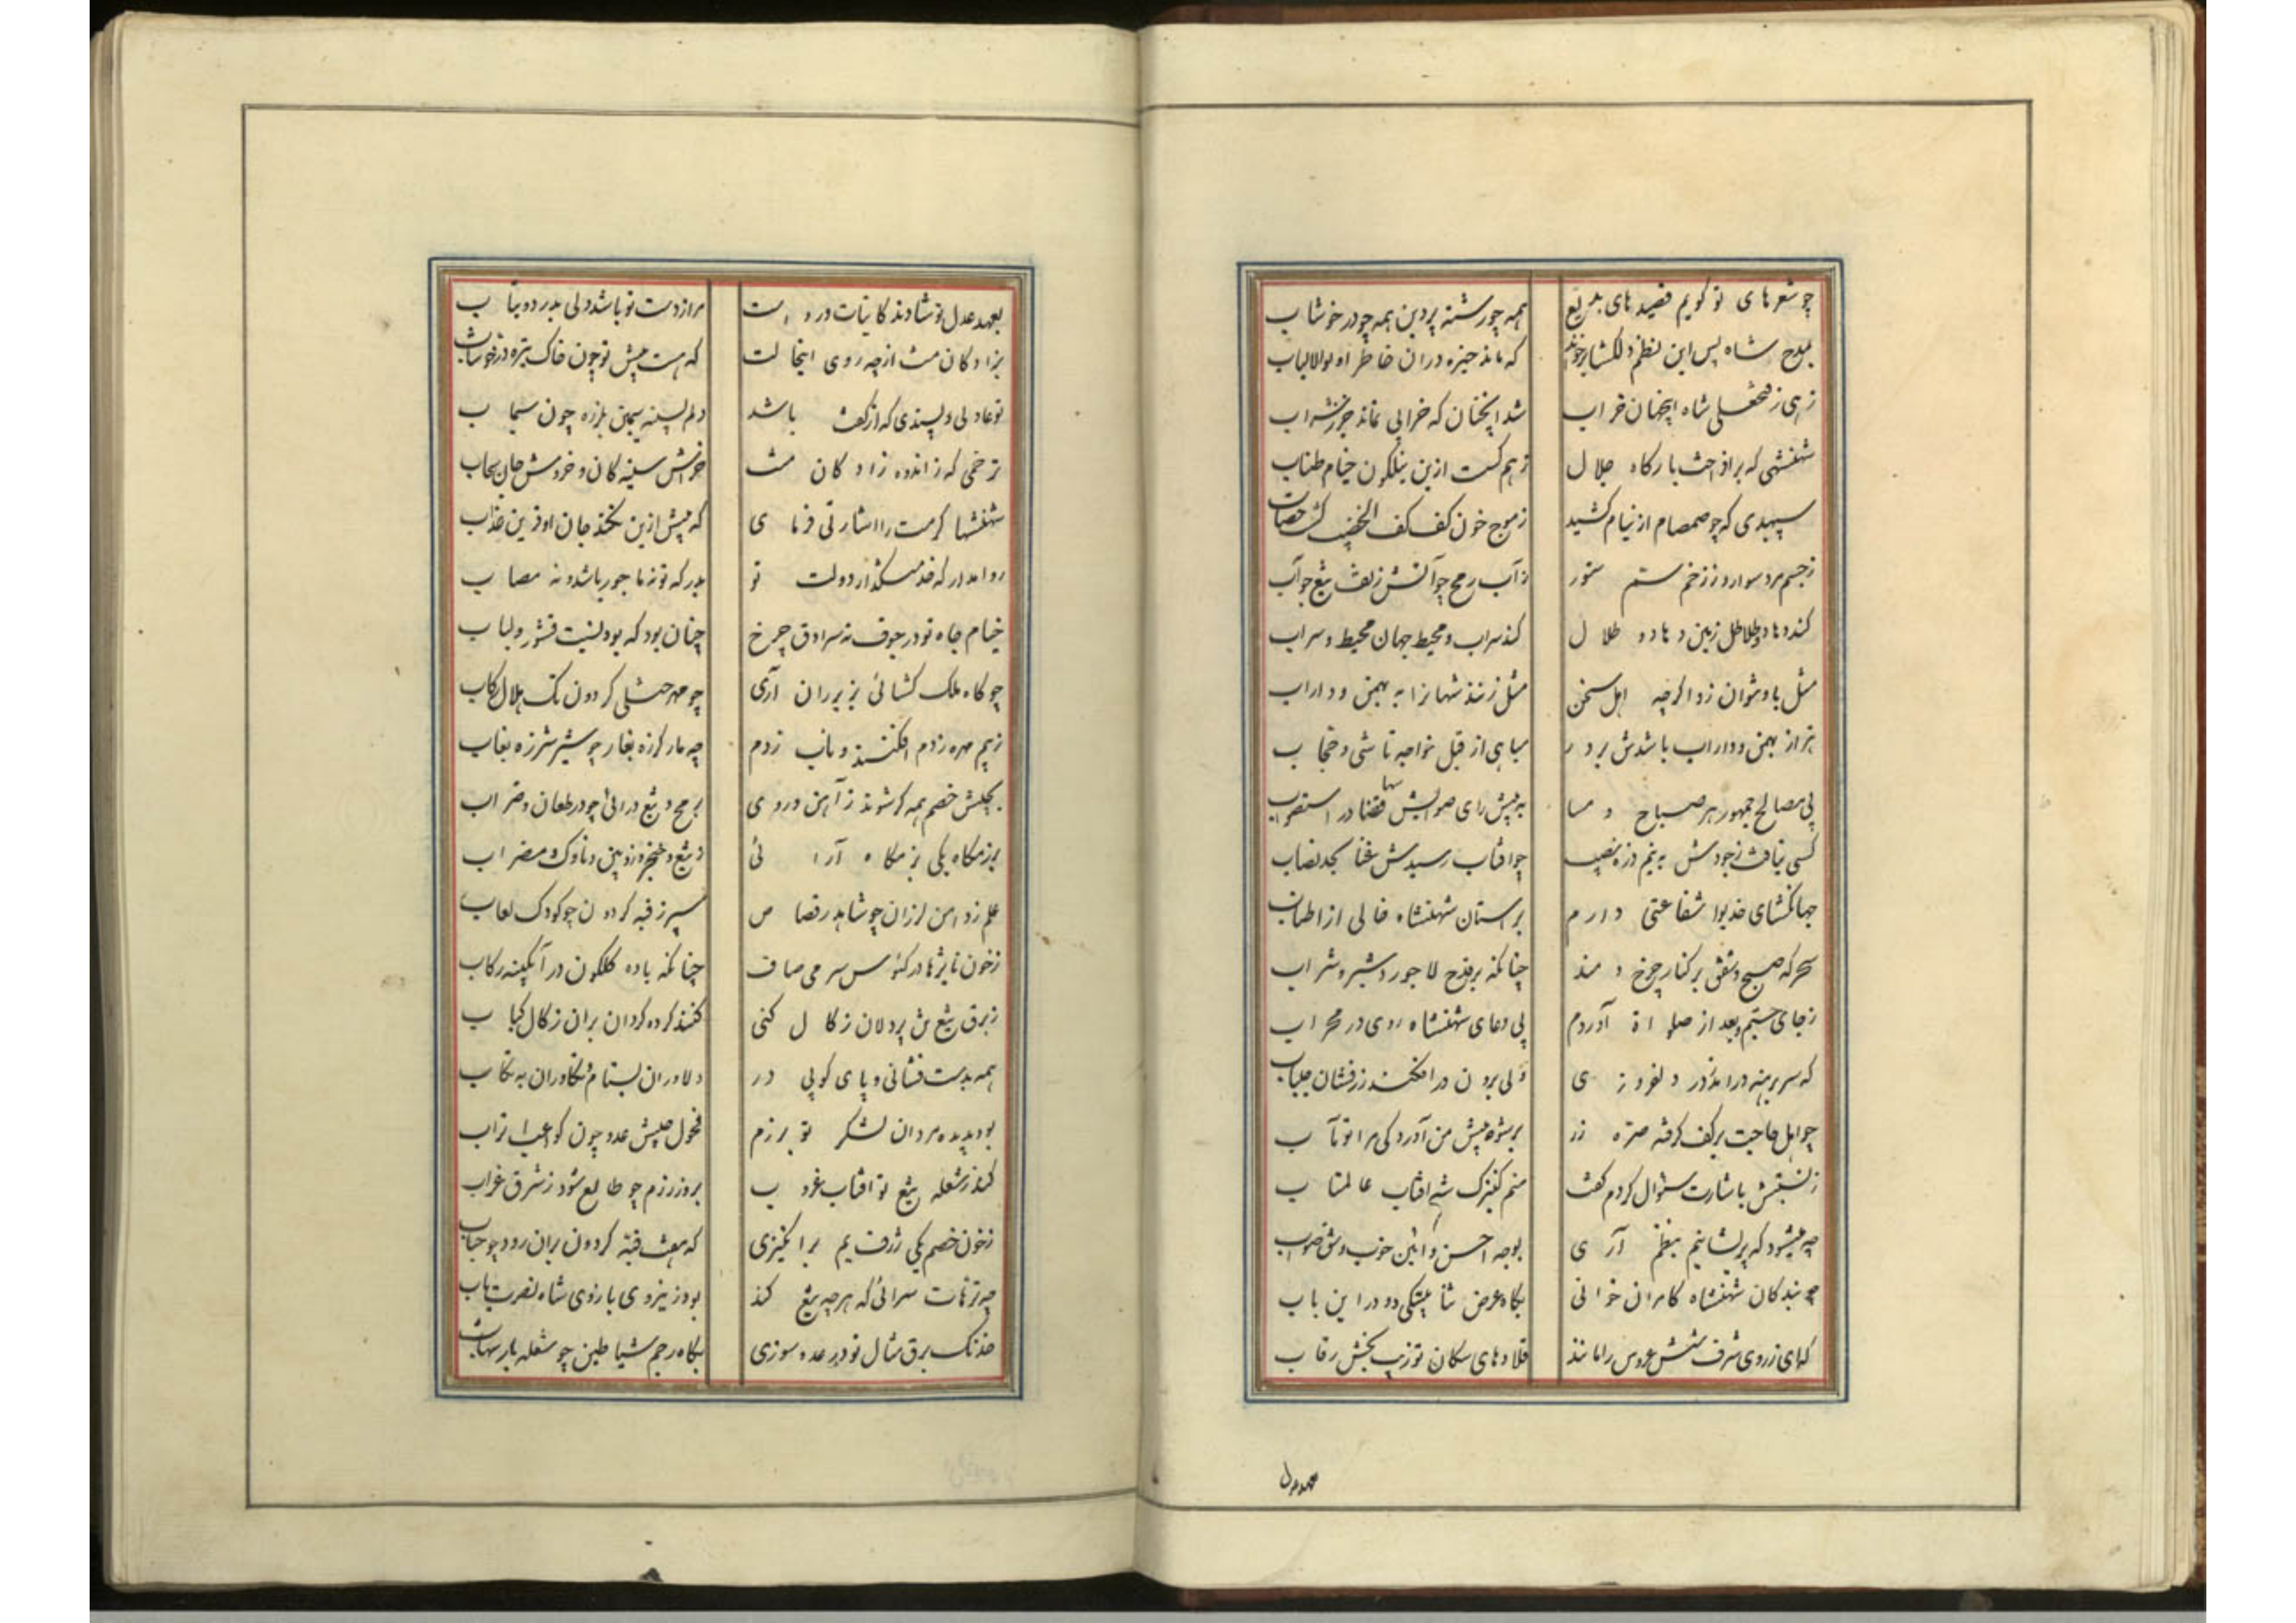 چو شعرهای تو گویم قصیدهای بدیع همه چو رشته پروین همه چو در خوشاب
بمدح شاه پس این نظم دلکشا برخواندم که ماند خیره دران خاطر اولوالالباب
زهی ز فتحعلی شاه اینجهان خراب شد اینچنان که خرابی نماند جز ز شراب
شهنشهی که برافراخت بارکاه جلال ز هم کسست ازین نیلکون خیام طناب
سپهبدی که چو صمصام از نیام کشید ز موج خون کف کف الخضیب کشت خضاب
ز جسم مرد سوار و ز زخم ستم ستور ز آب رمح چو آتش ز تف تیغ چو آب
کند وهاد و طلاطل زمین وهاد و طلال کند سراب و محیط جهان محیط و سراب
مثل باو نتوان زد اکرچه اهل سخن مثل زنند شهانرا به بهمن و داراب
هزار بهمن و داراب باشدش بر در سپاهی از قبل خواجه تاشی و حجاب
پی مصالح جمهور هر صباح و مسا به پیش رای صوابش قضا در استصواب
کسی نیافت ز جودش به نیم ذره نصیب چو افتاب رسیدش غنا بحد نصاب
جهانکشای خدیوا شفاعتی دارم بر استان شهنشاه خالی از اطناب
سحر که صبح و شفق بر کنار چرخ دمند چنانکه بر قدح لاجورد شیر و شراب
ز جای جستم و بعد از صلواة آوردم پی دعای شهنشاه روی در محراب
که سر برهنه درامد ز در دلفروزی ولی برون در افکنده زرفشان جلباب
چو اهل حاجت بر کف کرفته صره زر برشوه پیش من آورد کی مرا تو مآب
ز نسبتش باشارت سؤال کردم کفت منم کنیزک شه افتاب عالمتاب
چه میشود که پریشانیم بنظم آری بوجه احسن و ائین خوب و شق صواب
چو بندکان شهنشاه کامران خوانی بکاه عرض ثنا بیتکی دو در این باب
که ای ز روی شرف شش عروس را مانند قلادهای سکان تو زیب بخش رقاب
بعهد عدل تو شادند کاینات درو است مرا ز دست تو باشد دلی بدرد و بتاب
نزاد کان مت از چه روی اینحالت که هست پیش تو چون خاک تیره در خوشاب
تو عادلی و پسندی که از کفت باشد دلم بسینه سیمین بلرزه چون سیماب
ترحمی که ز اندوه زاد کان مت خراش سینه کان و خروش جان سحاب
شهنشها کرمت را اشارتی فرمای که بیش ازین نکند جان او قرین عذاب
روا مدار که خدمتکذار دولت تو بدر که تو نه ماجور باشد و نه مصاب
خیام جاه تو در جوف نه سرادق چرخ چنان بود که بود لنیت قشور و لباب
چو کاه ملک کشائی بزیر ران آری چو مهر خنلی کردون تک هلال رکاب
ز بیم مهره ز دم افکنند و ناب ز دم چه مار کرزه بغار چو شیر شرزه بغاب
بچالش خصم همه کر شوند ز آهن و روی برمح و تیغ در ائی چو در طعان و ضراب
برزمکاه یکی بزمکاه آرائی ز تیغ و خنجر و زوبین و ناوک و مضراب
علم ز دامن لرزان چو شاهد رقاص سپر ز قبه کردون چو کودک لعاب
ز خون نایژها در کئوس سر می صاف چنانکه باده کلکون در آبکینه رکاب
ز برق تیغ تن پردلان زکال کنی کنند کرده کردان بران زکال کباب
همه بدست فشانی و پای کوبی در دلاوران بستام و تکاوران به تکاب
بود بدیده مردان لشکر تو برزم فحول جیش عدو چون کواعب اتراب
کند ز شعله تیغ تو افتاب غروب بروز رزم چو طالع شود ز شرق غراب
ز خون خصم یکی ژرف یم برانکیزی که هفت قبه کردون بران رود چو حباب
چه ترهات سرائی که هر چه تیغ کند بود ز نیروی بازوی شاه نصرت یاب
خدنک برق مثال تو در عدو سوزی بکاه رجم شیاطین چو شعله بار شهاب